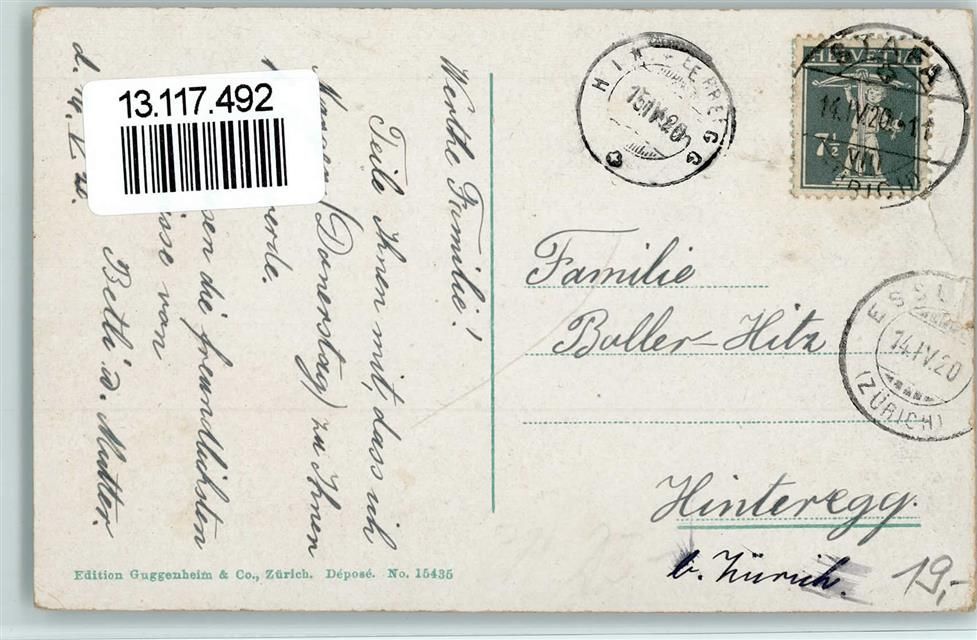 13.117.492
Werthe Familie!
Teile Ihnen mit, dass ich
Morgen (Donerstag) zu Ihnen
erde.
sen die freundlichsten
se von
Betli & d. Mutter.
d. 14. IV. 20.
Edition Guggenheim & Co., Zürich. Déposé. No. 15435
HINTEREGG
15.IV.20
HELVETIA
7½
14.IV.20
VIII
(ZÜRICH)
Familie
Boller-Hitz
ESSLI
14.IV.20
(ZÜRICH)
Hinteregg.
b. Zürich.
19,-